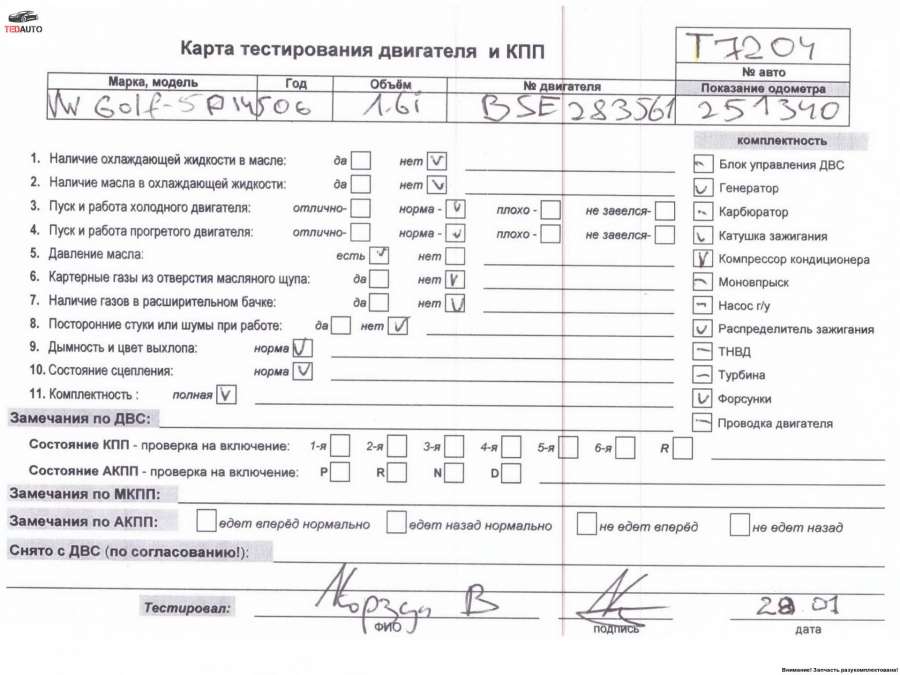 TEDAUTO
Карта тестирования двигателя и КПП
T7204
№ авто
Марка, модель Год Объём № двигателя Показание одометра
VW Golf-5 06 1.6i BSE 283561 251340
комплектность
1. Наличие охлаждающей жидкости в масле: да нет V
2. Наличие масла в охлаждающей жидкости: да нет V
3. Пуск и работа холодного двигателя: отлично- норма - V плохо - не завелся-
4. Пуск и работа прогретого двигателя: отлично- норма - V плохо - не завелся-
5. Давление масла: есть V нет
6. Картерные газы из отверстия масляного щупа: да нет V
7. Наличие газов в расширительном бачке: да нет V
8. Посторонние стуки или шумы при работе: да нет V
9. Дымность и цвет выхлопа: норма V
10. Состояние сцепления: норма V
11. Комплектность : полная V
Блок управления ДВС
V Генератор
- Карбюратор
V Катушка зажигания
V Компрессор кондиционера
- Моновпрыск
- Насос г/у
V Распределитель зажигания
- ТНВД
- Турбина
V Форсунки
- Проводка двигателя
Замечания по ДВС:
Состояние КПП - проверка на включение: 1-я 2-я 3-я 4-я 5-я 6-я R
Состояние АКПП - проверка на включение: P R N D
Замечания по МКПП:
Замечания по АКПП: едет вперёд нормально едет назад нормально не едет вперёд не едет назад
Снято с ДВС (по согласованию!):
Тестировал: В 28.01
ФИО подпись дата
Внимание! Запчасть разукомплектована!